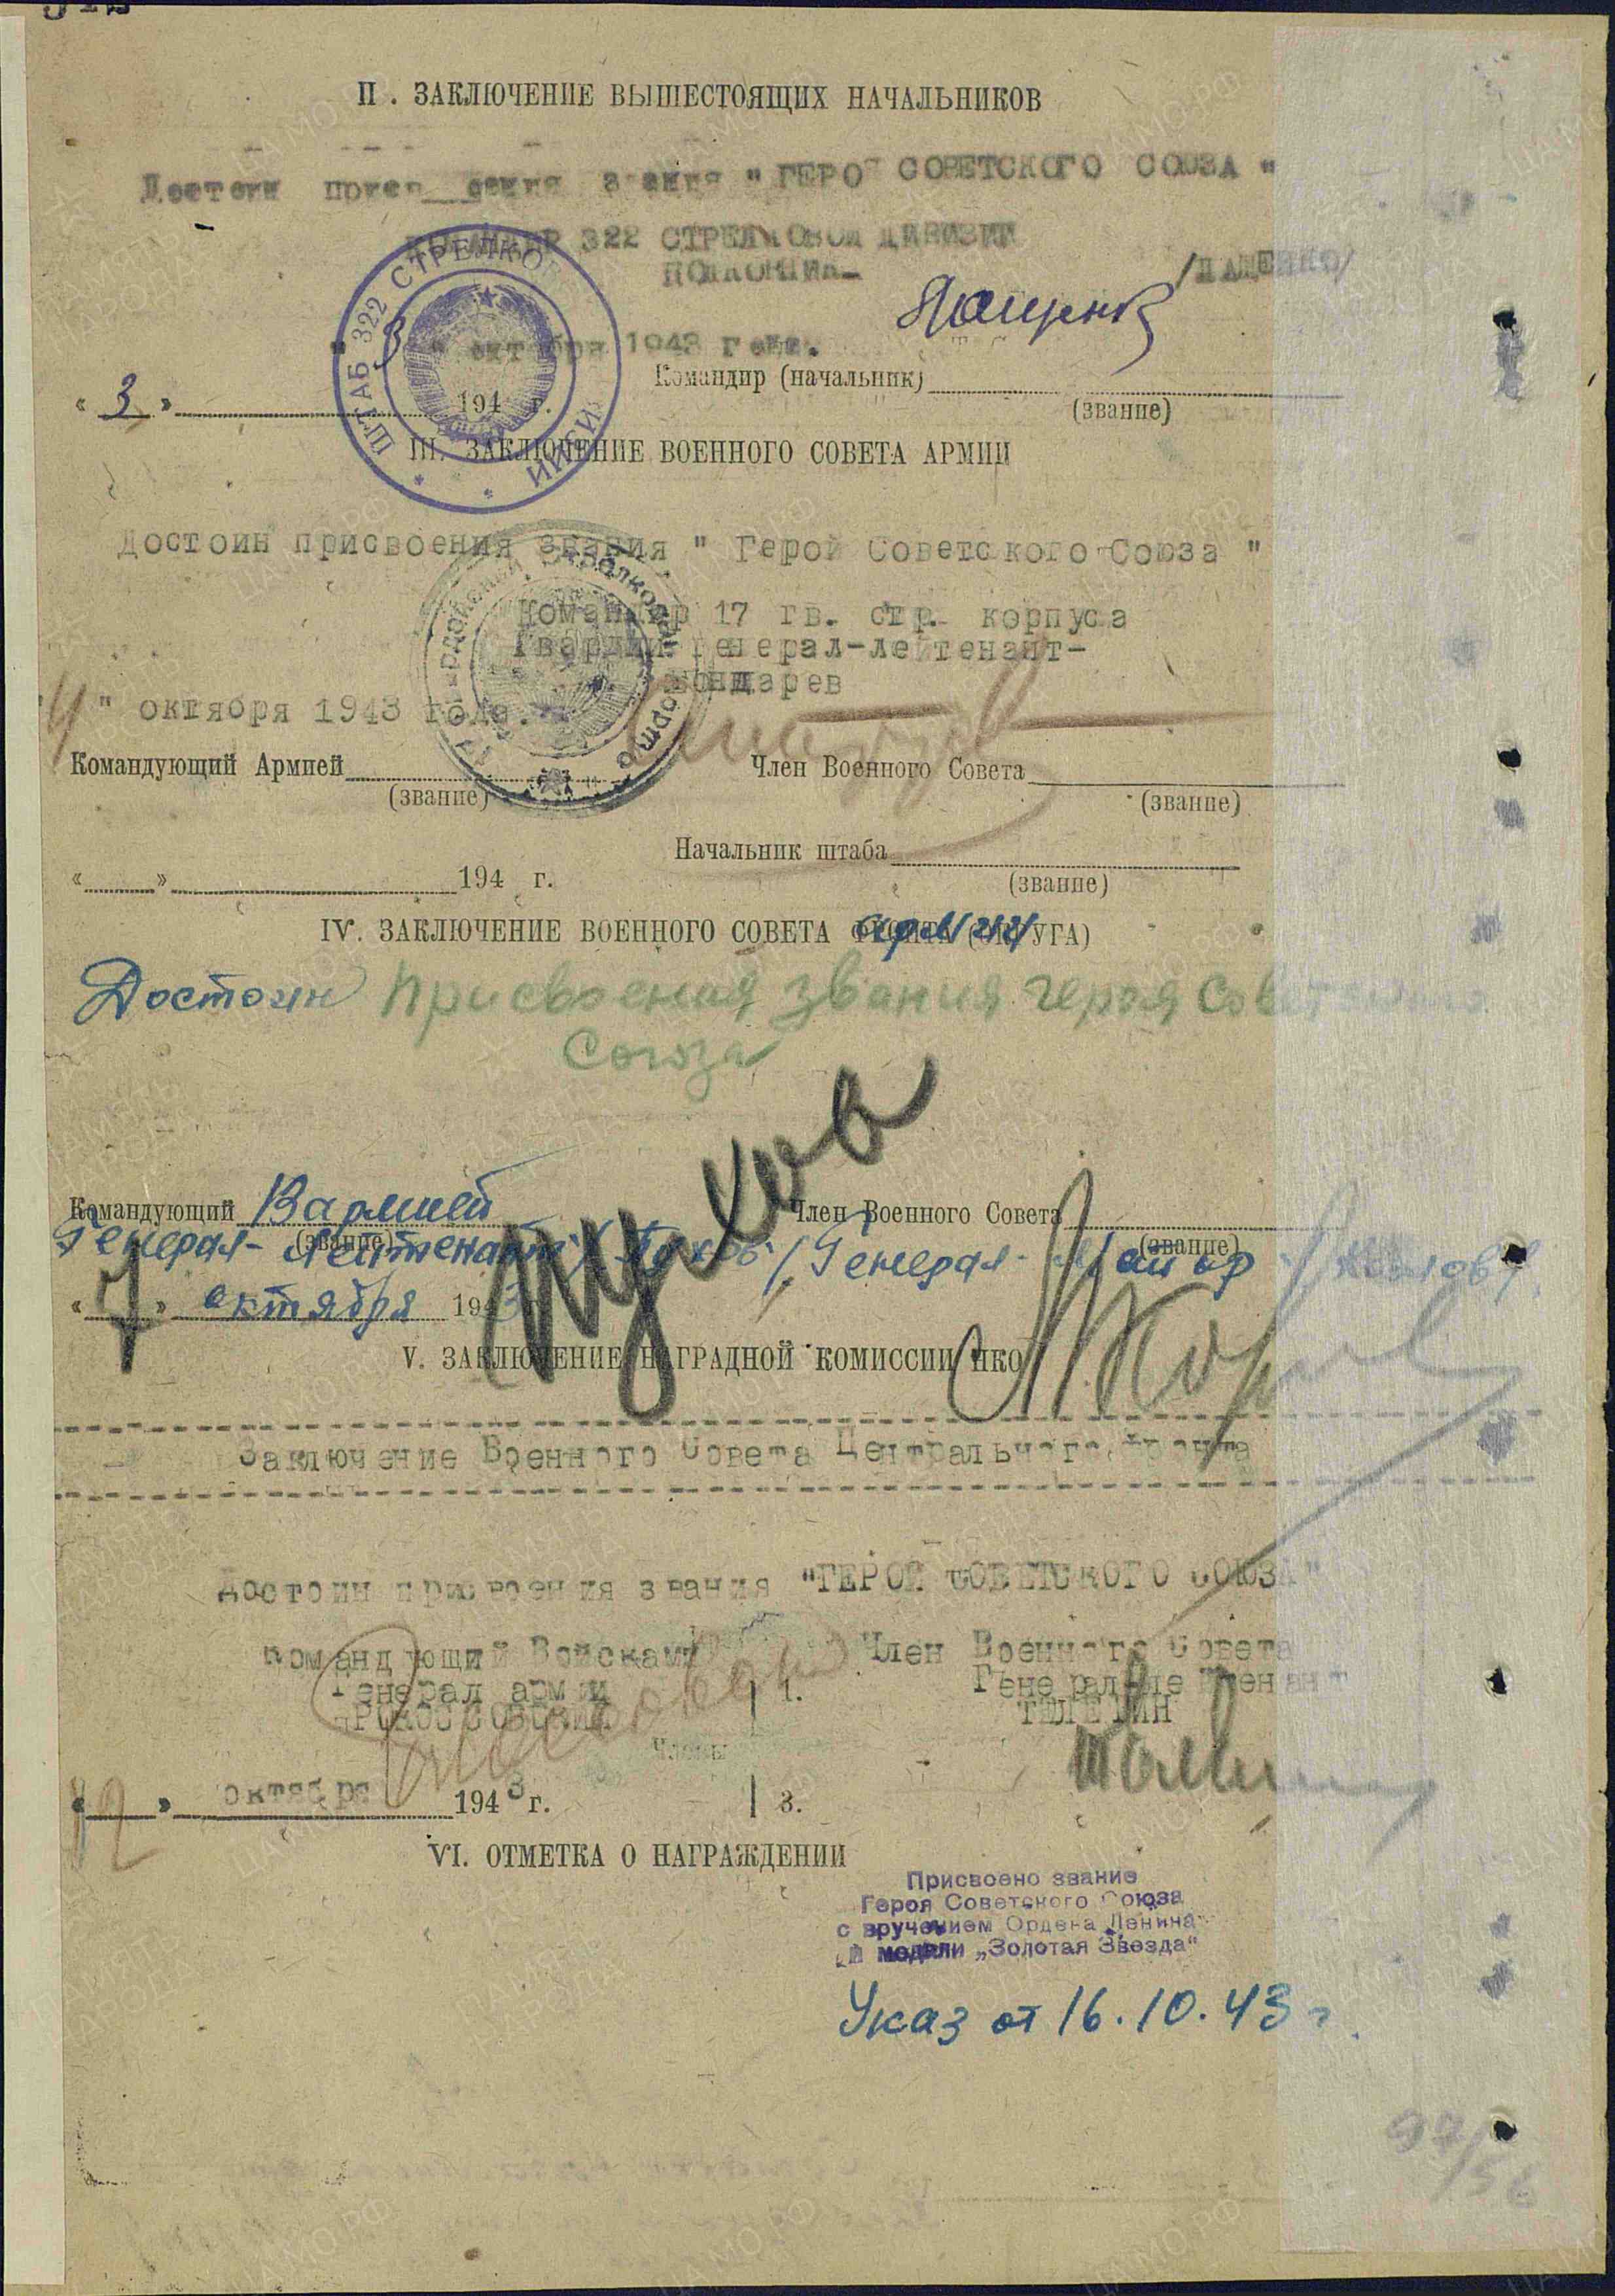 II. ЗАКЛЮЧЕНИЕ ВЫШЕСТОЯЩИХ НАЧАЛЬНИКОВ
Достоин звания "ГЕРОЙ СОВЕТСКОГО СОЮЗА"
КОМАНДИР 322 СТРЕЛКОВОЙ ДИВИЗИИ
ПОЛКОВНИК- /ПАЩЕНКО/
Пащенко
ШТАБ 322 СТРЕЛКОВ
" 3 " октября 1943 года.
Командир (начальник)
« 3 » 194 г.
(звание)
III. ЗАКЛЮЧЕНИЕ ВОЕННОГО СОВЕТА АРМИИ
Достоин присвоения звания " Герой Советского Союза "
Командир 17 гв. стр. корпуса
Гвардии Генерал-лейтенант-
Бондарев
"4" октября 1943 года.
Командующий Армией Член Военного Совета
(звание) (звание)
Начальник штаба
« » 194 г. (звание)
IV. ЗАКЛЮЧЕНИЕ ВОЕННОГО СОВЕТА армии
Достоин присвоения звания героя Советского
Союза
Командующий 13 армией Член Военного Совета
(звание) (звание)
Генерал-лейтенант /Пухов/ Генерал-майор /Козлов/
Пухов
« 7 » октября 1943
V. ЗАКЛЮЧЕНИЕ НАГРАДНОЙ КОМИССИИ НКО
Заключение Военного Совета Центрального Фронта
Достоин присвоения звания "ГЕРОЙ СОВЕТСКОГО СОЮЗА"
Командующий Войсками Член Военного Совета
Генерал армии 1. Генерал-лейтенант
РОКОССОВСКИЙ ТЕЛЕГИН
Члены
«12» октября 1943 г. 3.
VI. ОТМЕТКА О НАГРАЖДЕНИИ
Присвоено звание
Героя Советского Союза
с вручением Ордена Ленина
и медали „Золотая Звезда“
Указ от 16.10.43 г.
97/56